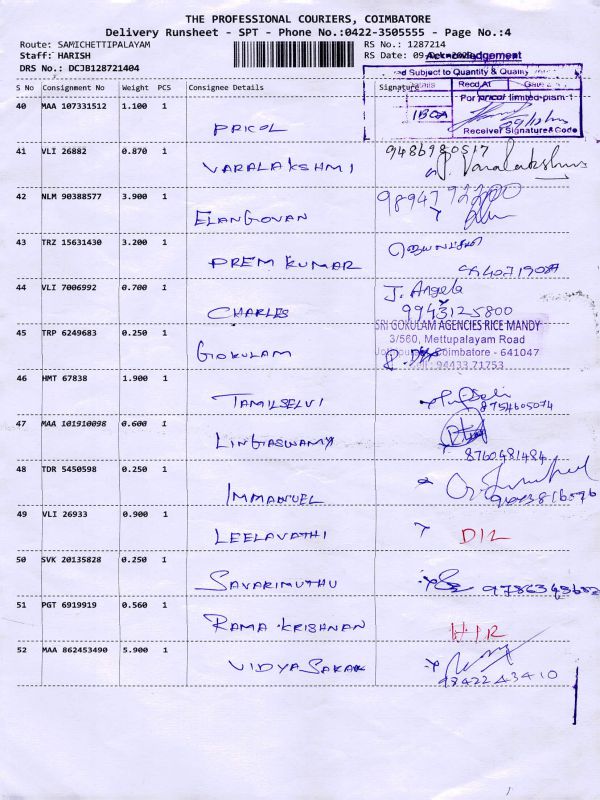 THE PROFESSIONAL COURIERS, COIMBATORE
Delivery Runsheet - SPT - Phone No.:0422-3505555 - Page No.:4
Route: SAMICHETTIPALAYAM
RS No.: 1287214
Staff: HARISH
RS Date: 09
Acknowledgement
DRS No.: DCJB128721404
Subject to Quantity & Quality
S No Consignment No Weight PCS Consignee Details Signature
Recd.At
40 MAA 107331512 1.100 1
For pricol limited-plant-1
PRICOL
Receiver Signature & Code
41 VLI 26882 0.870 1
9486980517
VARALAKSHMI
P. Varalakshmi
42 NLM 90388577 3.900 1
ELANGOVAN
43 TRZ 15631430 3.200 1
PREM KUMAR
44 VLI 7006992 0.700 1
J. Angela
CHARLES
9943125800
45 TRP 6249683 0.250 1
SRI GOKULAM AGENCIES RICE MANDY
3/560, Mettupalayam Road
GOKULAM
Coimbatore - 641047
94433 71753
46 HMT 67838 1.900 1
TAMILSELVI
8754605074
47 MAA 101910098 0.600 1
LINGASWAMY
8760481484
48 TDR 5450598 0.250 1
IMMANUEL
49 VLI 26933 0.900 1
LEELAVATHI
D12
50 SVK 20135828 0.250 1
SAVARIMUTHU
51 PGT 6919919 0.560 1
RAMA KRISHNAN
52 MAA 862453490 5.900 1
VIDYA SAKAR
9842243410